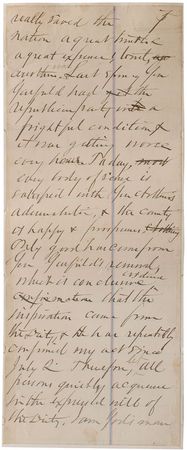 really saved the 7
nation a great trouble
a great expense
Last Spring Gen
Garfield had the
republican party in a
frightful condition &
it was getting worse
every hour. Today,
every body
satisfied with Gen Arthur's
administration, & the country
is happy & prosperous
Only good has come from
Gen Garfield's removal,
which is conclusive evidence
that the
inspiration came from
the Deity, & He has repeatedly
confirmed my act since
July 2. Therefore, let all
persons quietly acquiesce
in the expressed will of
the Deity. I am God's man